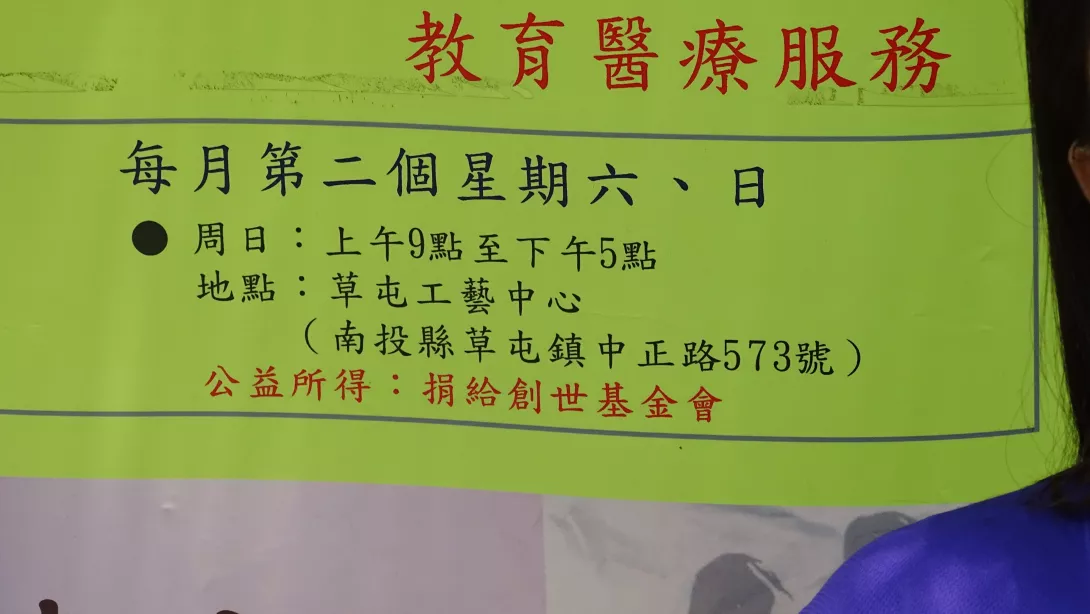 教育醫療服務
每月第二個星期六、日
●周日：上午9點至下午5點
地點：草屯工藝中心
（南投縣草屯鎮中正路573號）
公益所得：捐給創世基金會